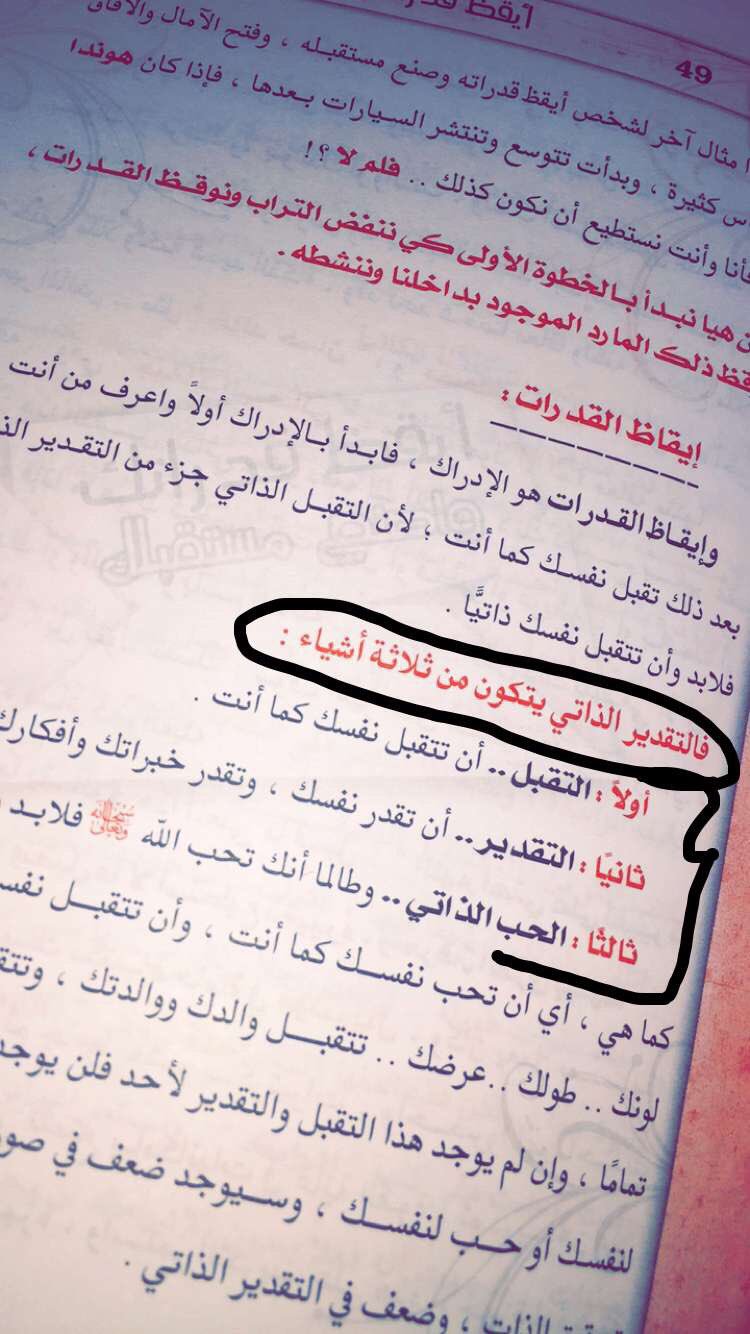 أيقظ
49
مثال آخر لشخص أيقظ قدراته وصنع مستقبله ، وفتح الآمال والآفاق
س كثيرة ، وبدأت تتوسع وتنتشر السيارات بعدها ، فإذا كان هوندا
فأنا وأنت نستطيع أن نكون كذلك .. فلم لا ؟!
هيا نبدأ بالخطوة الأولى كي ننفض التراب ونوقظ القدرات ،
قظ ذلك المارد الموجود بداخلنا وننشطه .
إيقاظ القدرات :
وإيقاظ القدرات هو الإدراك ، فابدأ بالإدراك أولاً واعرف من أنت
بعد ذلك تقبل نفسك كما أنت ؛ لأن التقبل الذاتي جزء من التقدير الذ
فلابد وأن تتقبل نفسك ذاتيًّا .
فالتقدير الذاتي يتكون من ثلاثة أشياء :
أولاً : التقبل .. أن تتقبل نفسك كما أنت .
ثانيًا : التقدير.. أن تقدر نفسك ، وتقدر خبراتك وأفكارك
ثالثًا : الحب الذاتي .. وطالما أنك تحب الله سبحانه وتعالى فلابد
كما هي ، أي أن تحب نفسك كما أنت ، وأن تتقبل نفس
لونك .. طولك ..عرضك .. تتقبل والدك ووالدتك ، وتتق
تمامًا ، وإن لم يوجد هذا التقبل والتقدير لأحد فلن يوجد
لنفسك أو حب لنفسك ، وسيوجد ضعف في صو
الذات ، وضعف في التقدير الذاتي .